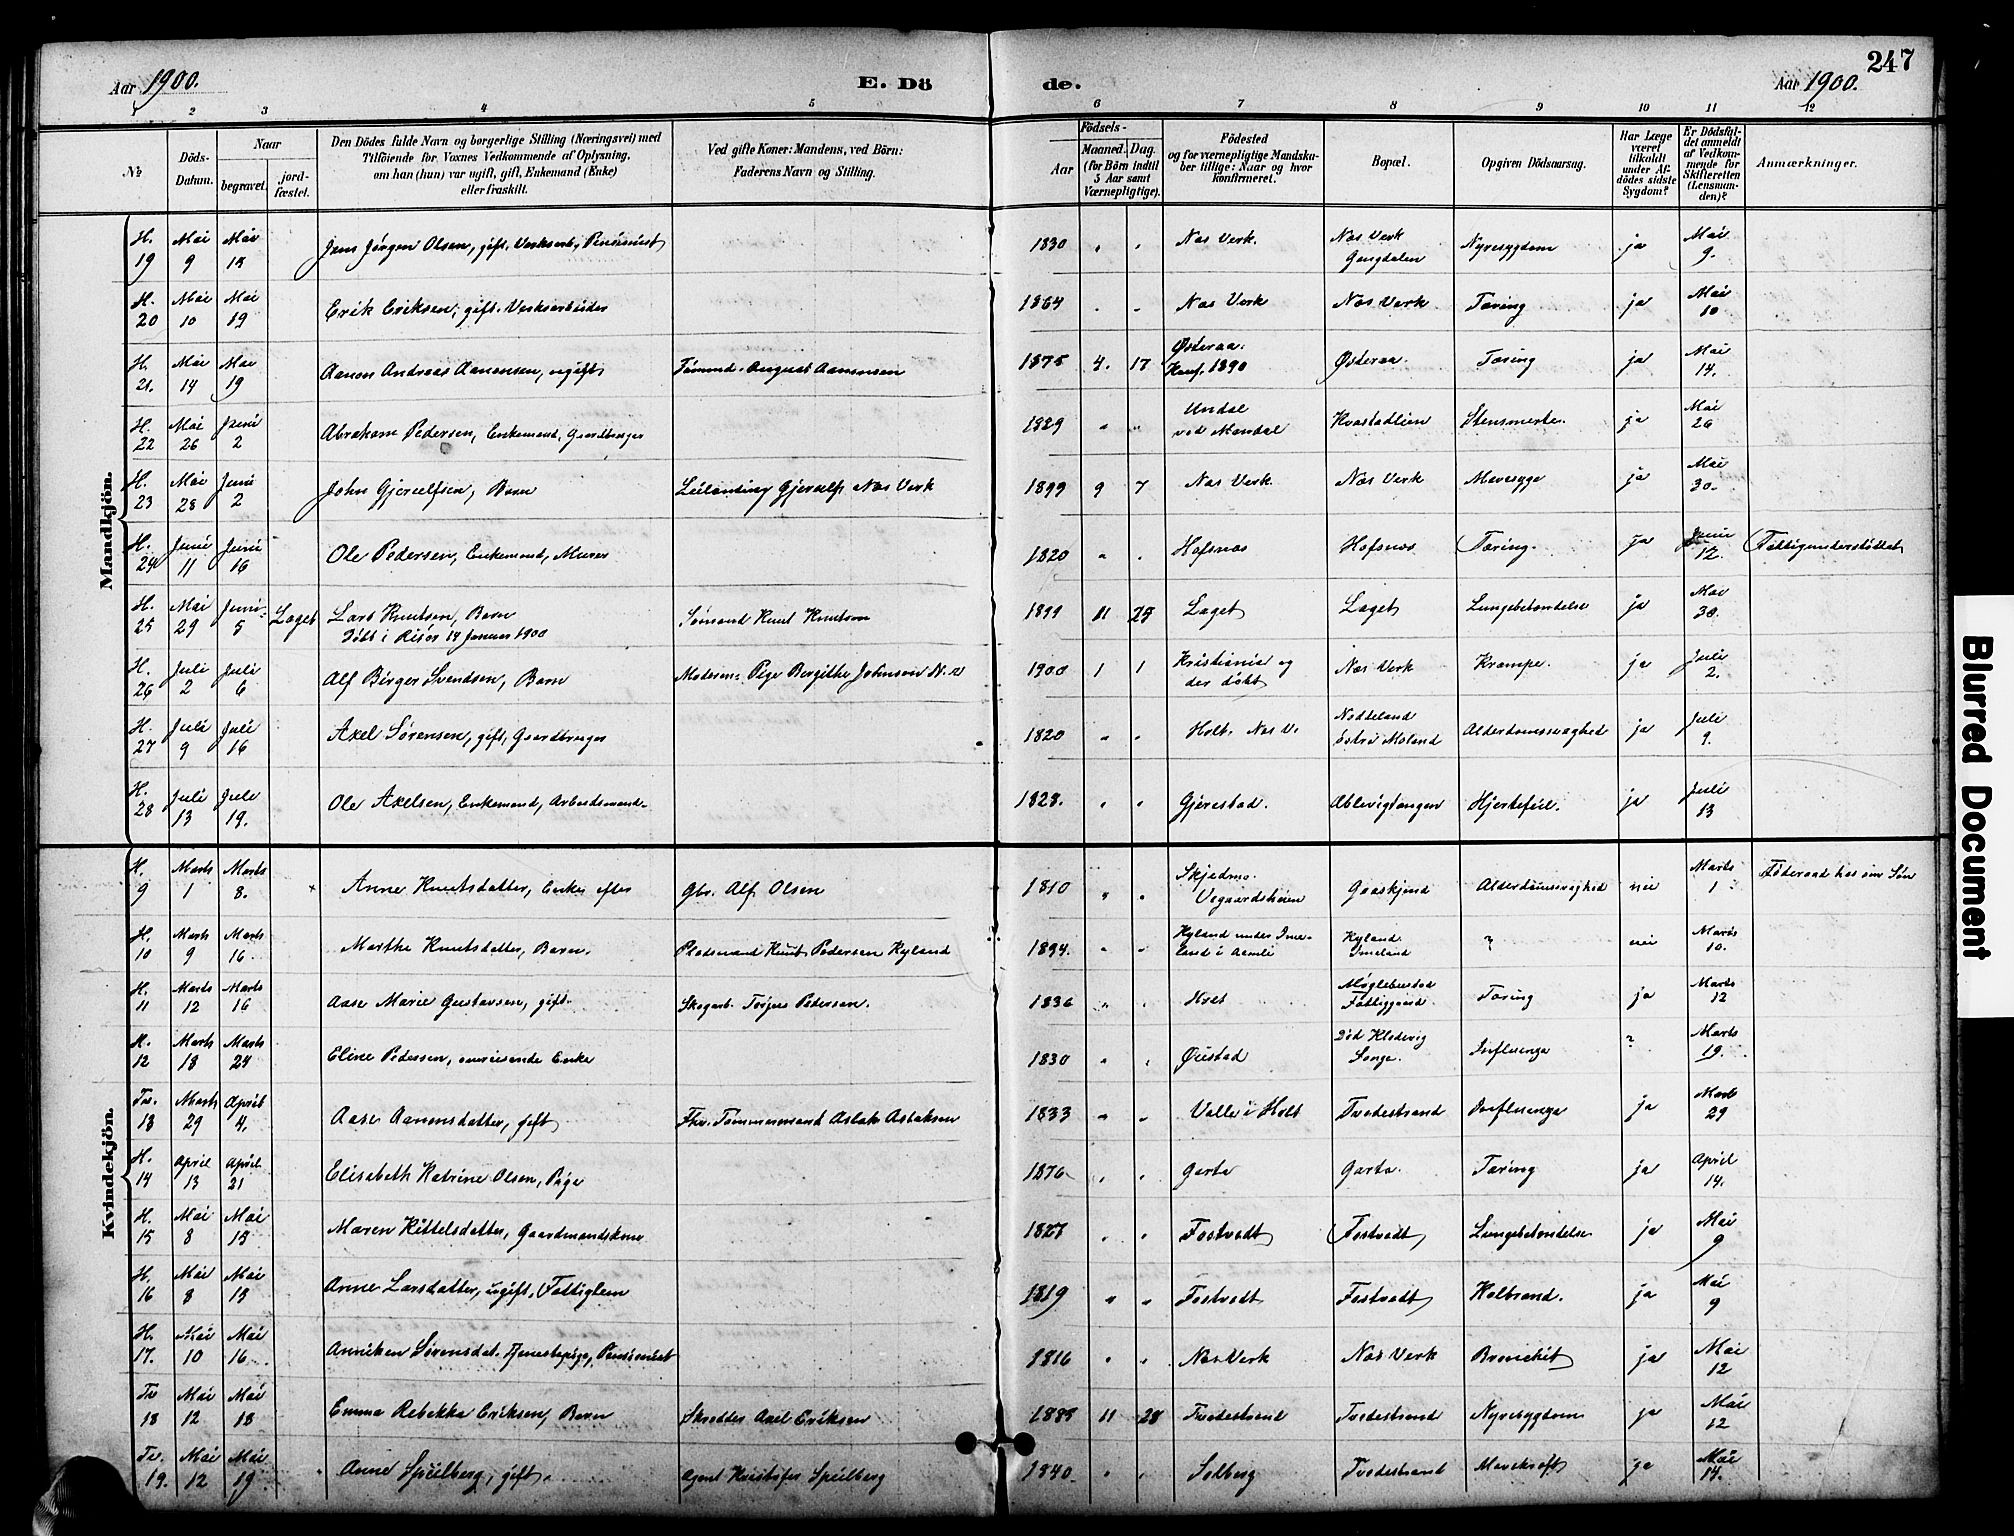 247
Aar 1900. E. Dö de. Aar 1900.
1 2 3 4 5 6 7 8 9 10 11 12
№
Döds-Datum.
Naar
begravet.
jord-fæstet.
Den Dödes fulde Navn og borgerlige Stilling (Næringsvei) med
Tilföiende for Voxnes Vedkommende af Oplysning,
om han (hun) var ugift, gift, Enkemand (Enke)
eller fraskilt.
Ved gifte Koner: Mandens, ved Börn:
Faderens Navn og Stilling.
Födsels-
Aar
Maaned. Dag.
(for Börn indtil
5 Aar samt
Værnepligtige).
Födested
og for værnepligtige Mandska-
ber tillige: Naar og hvor
konfirmeret.
Bopæl.
Opgiven Dödsaarsag.
Har Læge
været
tilkaldt
under Af-
dödes sidste
Sygdom?
Er Dödsfal-
det anmeldt
af Vedkom-
mende for
Skifteretten
(Lensman-
den)?
Anmærkninger.
Mandkjön.
H. 19 Mai 9 Mai 18 Jens Jörgen Olsen, gift, Verksarb., Pensionist 1830 " " Næs Verk. Næs Verk Gongdalen Nyresygdom ja Mai 9.
H. 20 Mai 10 Mai 19 Erik Eriksen, gift, Verksarbeider 1864 " " Næs Verk Næs Verk Tæring ja Mai 10
H. 21. Mai 14 Mai 19 Aanon Andreas Aanonsen, ugift Tömmd. August Aanonsen 1875 4. 17 Østeraa. Konf. 1890 Østeraa. Tæring ja Mai 14.
H. 22 Mai 26 Juni 2 Abraham Pedersen, Enkemand, Gaardbruger 1829 " " Undal ved Mandal Kvastadlien Stensmerte. ja Mai 26
H. 23 Mai 28 Juni 2 John Gjerulfsen, Barn Leilending Gjerulfs. Næs Verk 1899 9 7 Næs Verk. Næs Verk Mavesyge ja Mai 30.
H. 24 Juni 11 Juni 16 Ole Pedersen, Enkemand, Murer 1820 " " Hofsnæs Hofsnæs Tæring. ja Juni 12. Fattigunderstöttet
H. 25 Mai 29 Juni 5 Laget Lars Knutsen, Barn Sömand Knut Knutsen 1899 11 25 Laget Laget Lungebetændelse ja Mai 30.
Döbt i Risör 14 Januar 1900
H. 26 Juli 2 Juli 6 Alf Birger Svendsen, Barn Moderen: Pige Bergithe Johnsen N. V 1900 1 1 Kristiania og der döbt Næs Verk Krampe. ja Juli 2.
H. 27 Juli 9 Juli 16 Axel Sörensen, gift, Gaardbruger 1820 " " Holt. Næs V. östre Moland Alderdomssvaghed ja Juli 9.
H. 28 Juli 13 Juli 19. Ole Axelsen, Enkemand, Arbeidsmand 1828. " " Gjerestad. Ablevigtangen Hjertefeil. ja Juli 13
Kvindekjön.
H. 9 Marts 1 Marts 8. Anne Knutsdatter, Enke efter Gbr. Alf Olsen 1810 " " Vegaardsheien Gaaskjend Alderdomssvaghed nei Marts 1 Föderaad hos sin Sön
H. 10 Marts 9 Marts 16. Marthe Knutsdatter, Barn. Pladsmand Knut Pedersen Kyland 1894. " " Kyland under Ime-land i Aamli Kyland Imeland ? nei Marts 10.
H. 11 Marts 12 Marts 16 Aase Marie Gustavsen, gift. Skogarb. Torjus Pedersen. 1836 " " Holt Möglebustad Fattiggaard Tæring ja Marts 12
H. 12 Marts 18 Marts 24 Eline Pedersen, omreisende Enke 1830 " " Öiestad Död Klodevig Songe. Influenza ? Marts 19.
Tv. 13 Marts 29 April 4. Aase Aanonsdatter, gift Fhv. Tømmermand Aslak Aslaksen 1833 " " Valle i Holt Tvedestrand Influenza ja Marts 29
H. 14 April 13 April 21 Elisabeth Katrine Olsen, Pige 1876 " " Garta Garta. Tæring ja April 14.
H. 15 Mai 8 Mai 13 Maren Kittelsdatter, Gaardmandskone 1827 " " Fostvedt Fostvedt Lungebetændelse ja Mai 9
H. 16 Mai 8 Mai 13 Anne Larsdatter, ugift, Fattiglem 1819 " " Fostvedt Fostvedt Kolbrand. ja Mai 9
H. 17. Mai 10 Mai 16 Anniken Sörensdat. Tjenestepige, Pensionist 1816 " " Næs Verk Næs Verk Bronchit ja Mai 12
Tv 18 Mai 12 Mai 18 Emma Rebekka Eriksen, Barn Skrædder Axel Eriksen 1885 11 28 Tvedestrand Tvedestrand Nyresygdom ja Mai 12
Tv. 19. Mai 12 Mai 19 Anne Speilberg, gift. Agent Kristofer Speilberg 1840. " " Solberg Tvedestrand Mavekræft ja Mai 14.
Blurred Document